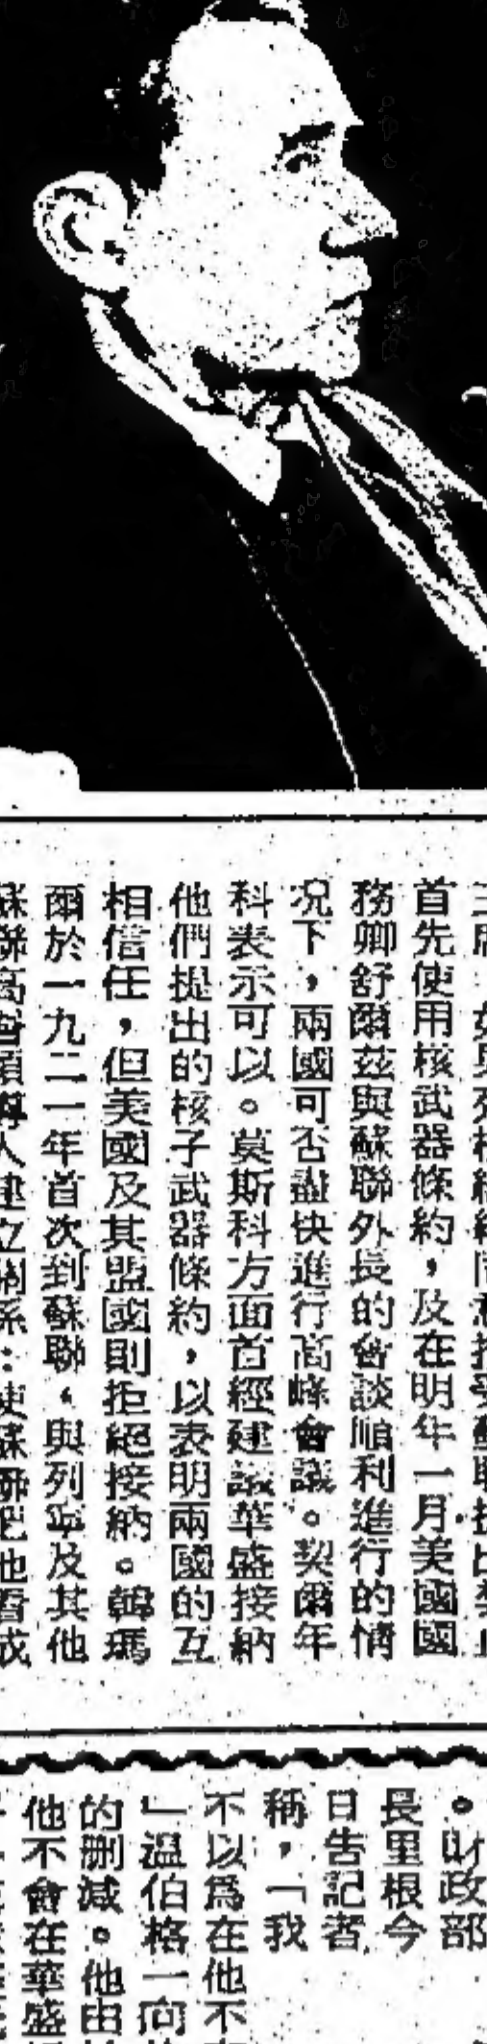 首先使用核武器條約，及在明年一月美國國
務卿舒爾茲與蘇聯外長的會談順利進行的情
况下，兩國可否盡快進行高峰會議。契爾年
科表示可以。莫斯科方面首經建議華盛接納
他們提出的核子武器條約，以表明兩國的互
相信任，但美國及其盟國則拒絕接納。韓瑪
爾於一九二一年首次到蘇聯，與列寧及其他
。財政部
長里根今
日告記者
稱，「我
不以爲在他不
」温伯格一向
的刪減。他由
他不會在華盛